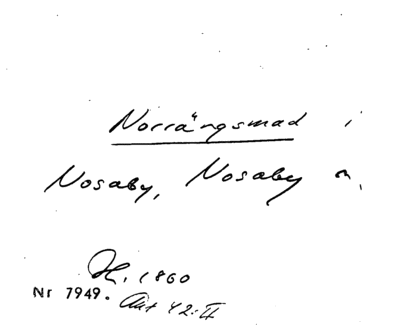 Norrängsmad i
Nosaby, Nosaby n.
H. 1860
Nr 7949. Akt 42:II